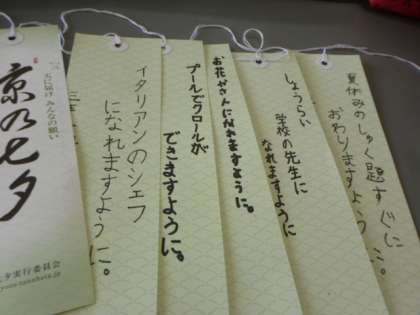 夏休みのしゅく題すぐに
おわりますように。
しょうらい
学校の先生に
なれますように
お花やさんになれますように。
プールでクロールが
できますように。
イタリアンのシェフ
になれますように。
天に届け みんなの願い
京の七夕